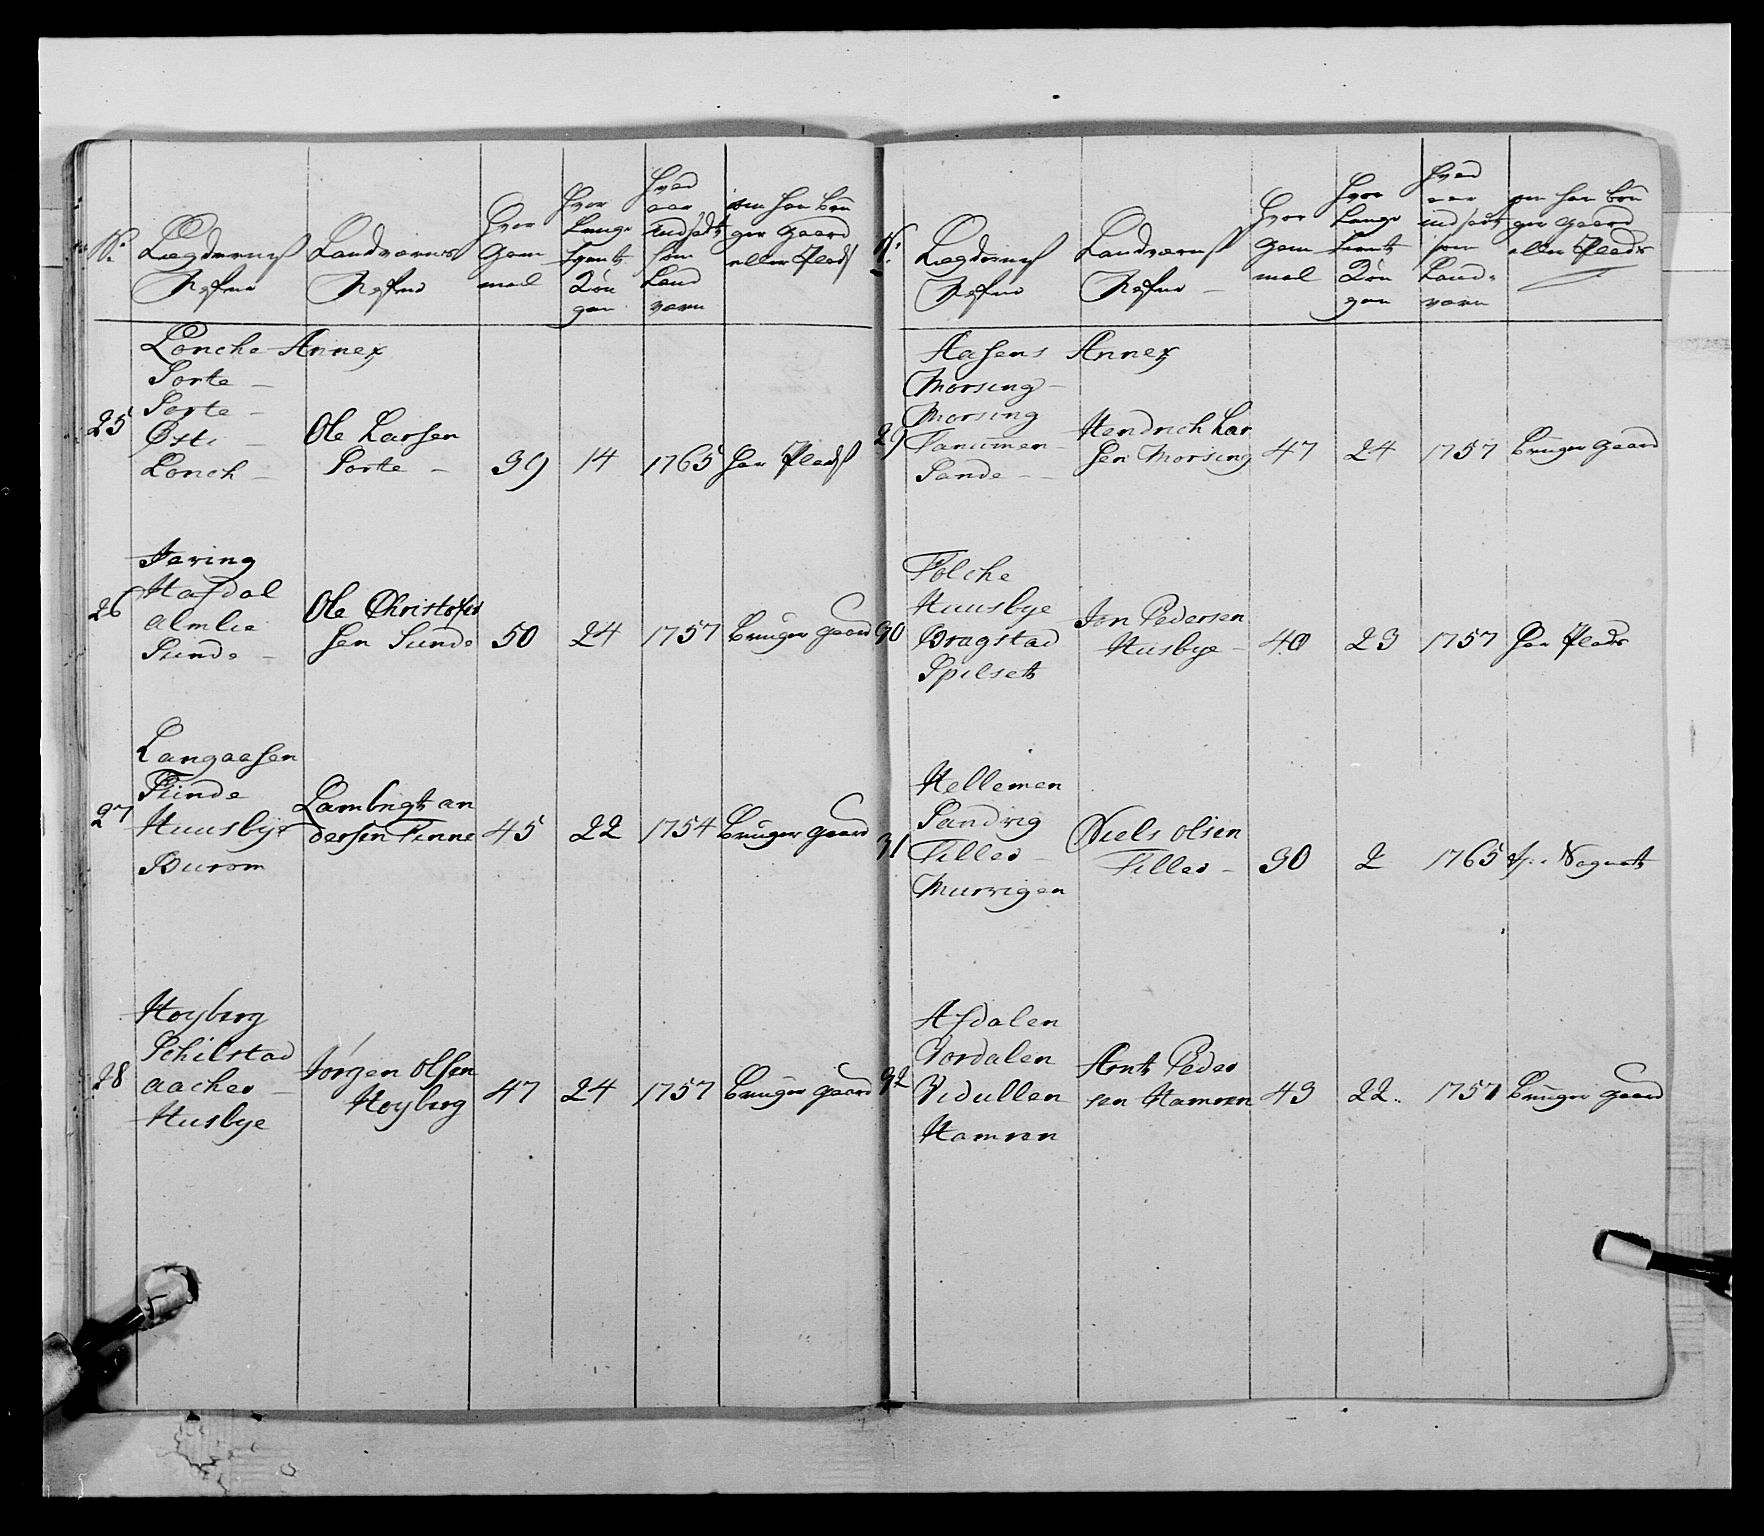 No:
Lægdernes
Nafne
Landværnes
Nafne
Hvor
Gam
mel
Hvor
Lenge
tient
Kon
gen
Hvad
aar
Indsadt
som
Land
værn
om han bru
ger gaard
eller Plads
Lonche Annex
Sorte
25
Sorte
Østi
Lonch
Ole Larsen
Sorte
39
14
1765
har Plads
26
Jæving
Hafdal
Almlie
Sunde
Ole Christofer
sen Sunde
50
24
1757
bruger gaard
27
Langaasen
Finde
Huusbye
Burom
Lambrigt an
dersen Finne
45
22
1754
bruger gaard
28
Hoyberg
Schilstad
Aacher
Husbye
Jørgen Olsen
Hoyberg
47
24
1757
bruger gaard
N:
Lægdernes
Nafne
Landværns
Nafne
Hvor
Gam
mel
Hvor
Lenge
tient
Kon
gen
Hvad
aar
indsadt
som
Land-
værn
om han bru
ger gaard
eller Plads
Aasens Annex
Morsing
29
Morsing
Fanumen
Sande
Hendrich Lar
sen Morsing
47
24
1757
bruger gaard
30
Folche
Huusbye
Bragstad
Spilset
Jon Pedersen
Husbye
40
23
1757
har Plads
31
Hellemen
Sandvig
Filler
Murvigen
Niels Olsen
Filler
30
2
1765
32
Afdalen
Nordalen
Vidullen
Hamren
Arnt Peder
sen Hamren
43
22
1757
bruger gaard